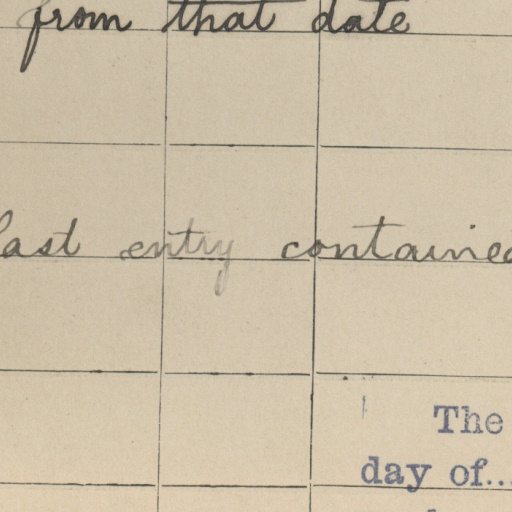 from that date
last entry contained
The
day of...